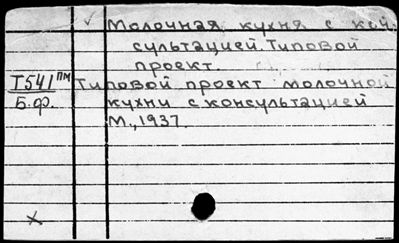 Молочная кухня с кон
сультацией. Типовой
проект.
Т541 пм Типовой проект молочной
Б.ф. кухни с консультацией
М., 1937.